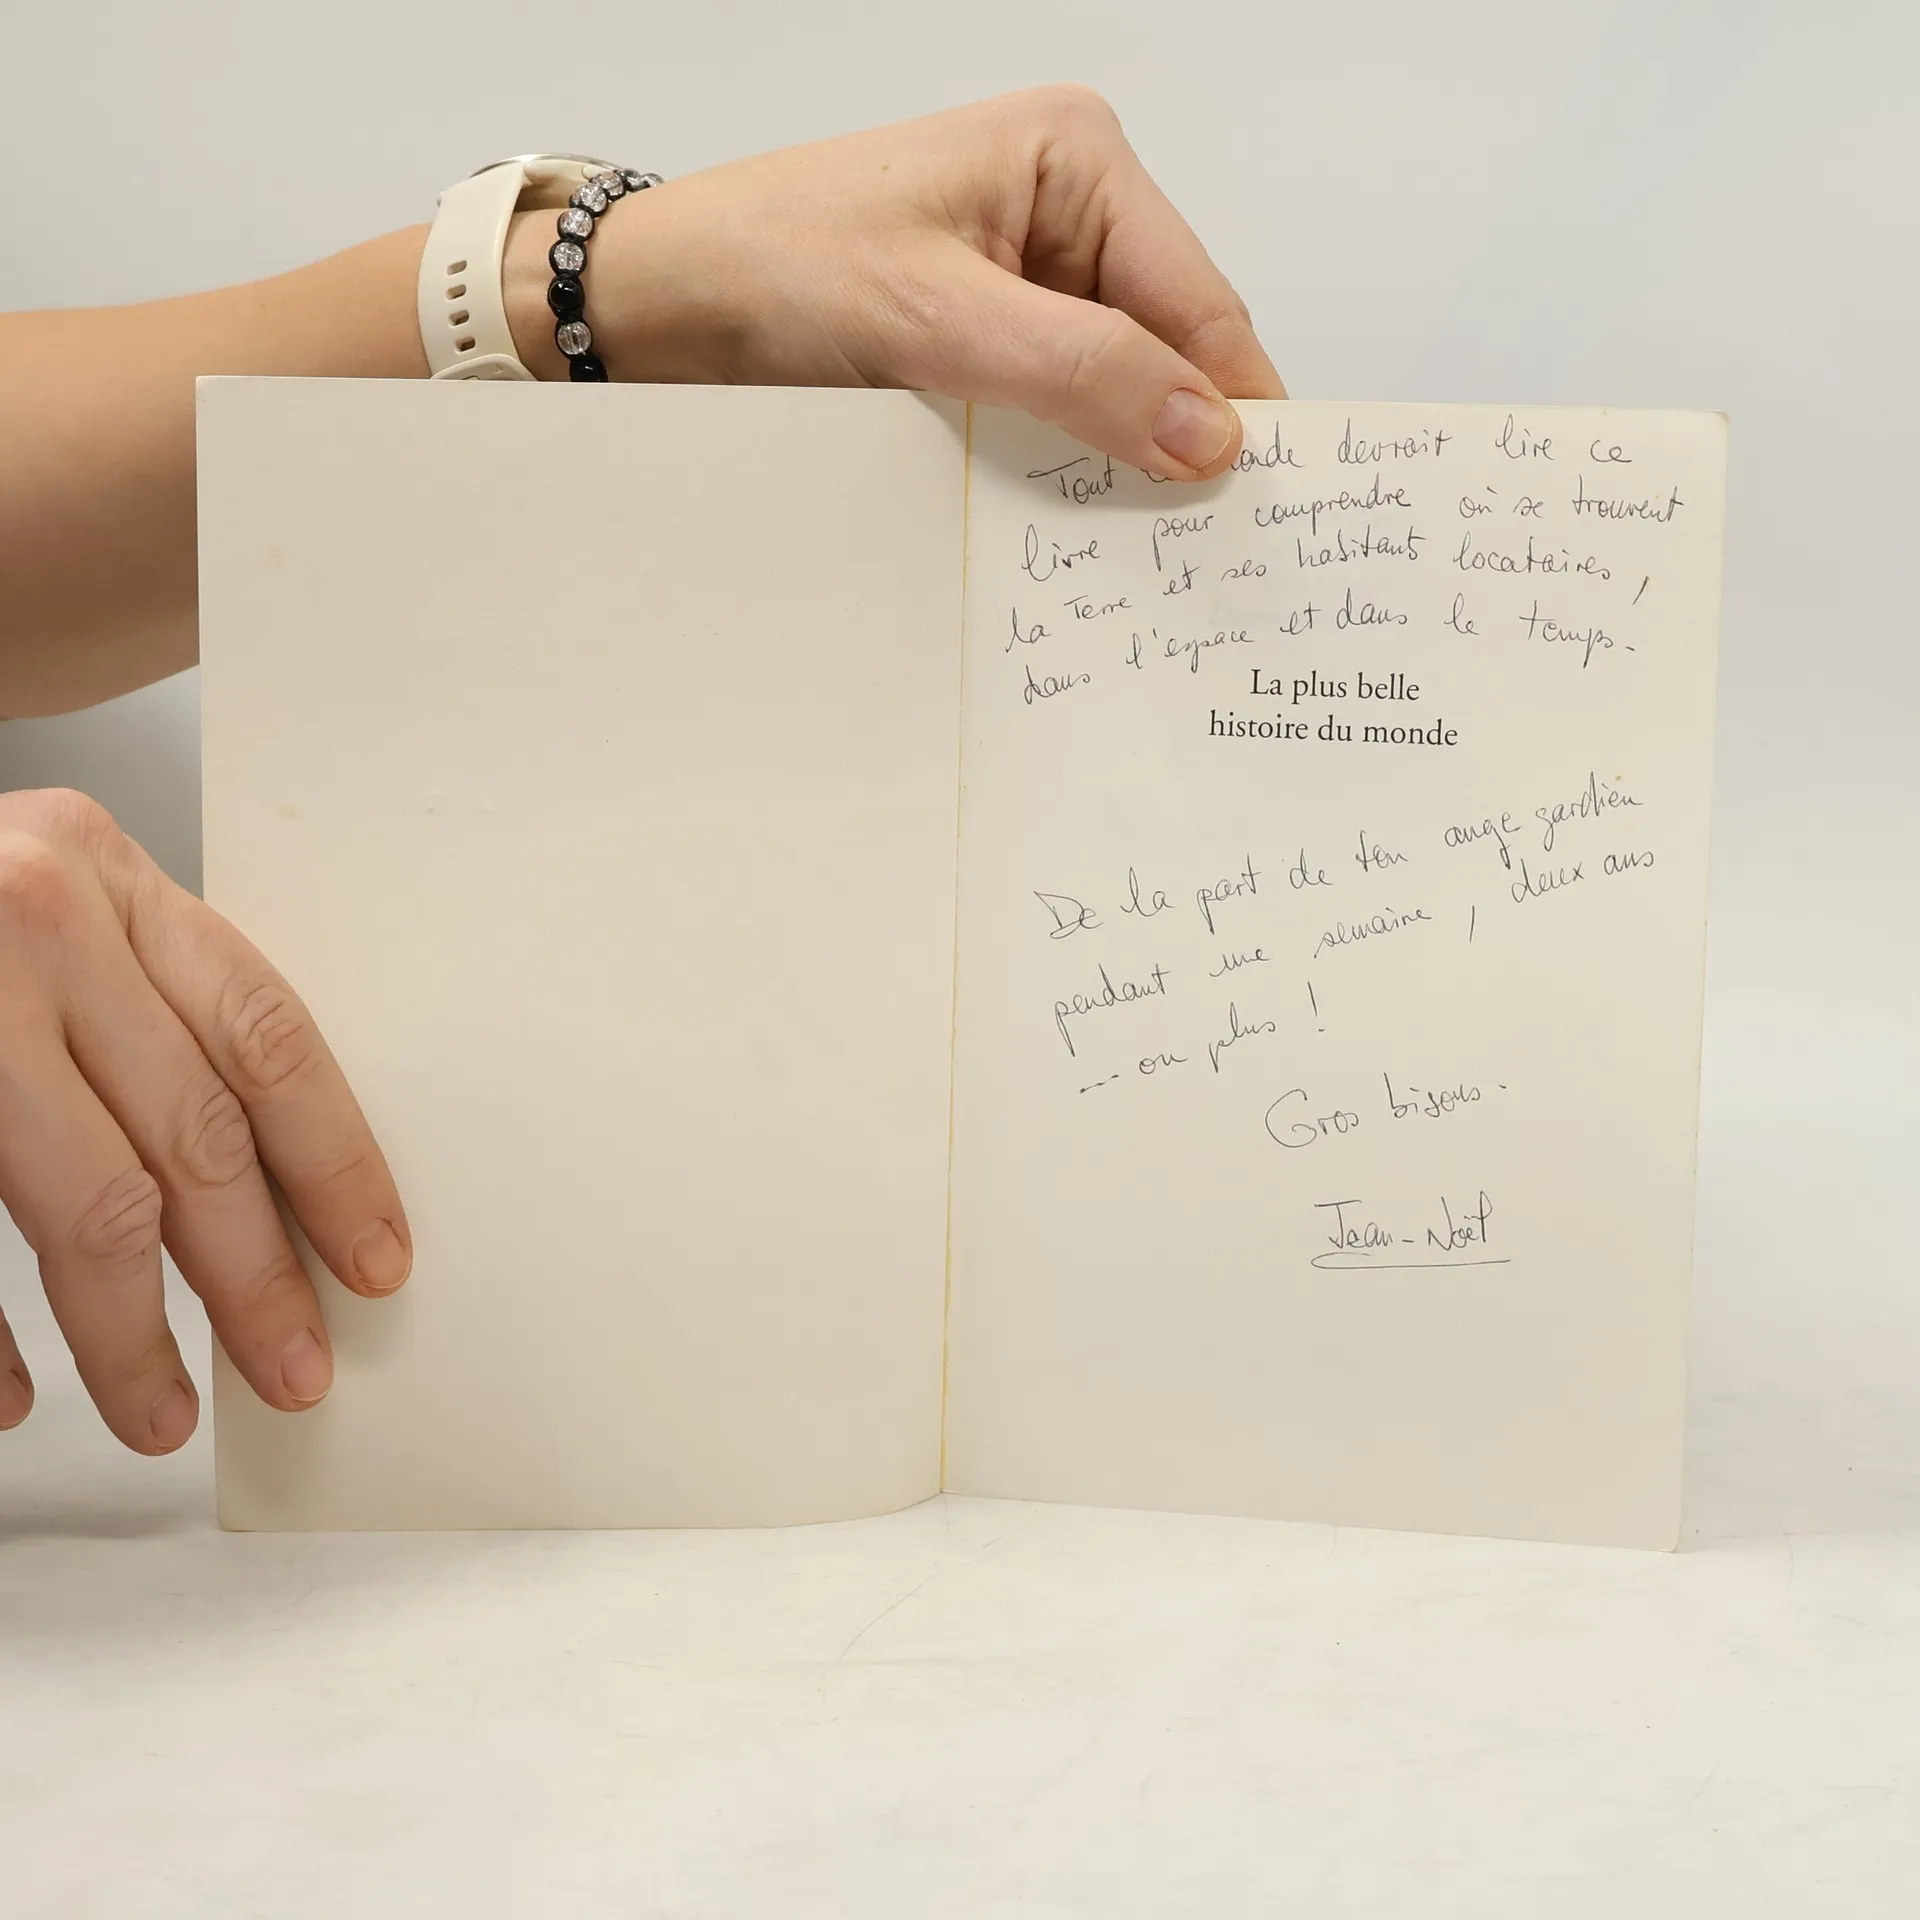 Tout onde devrait lire ce
livre pour comprendre où se trouvent
la Terre et ses habitants locataires,
dans l'espace et dans le temps.
La plus belle
histoire du monde
De la part de ton ange gardien
pendant une semaine, deux ans
--- ou plus !
Gros bisous.
Jean-Noël